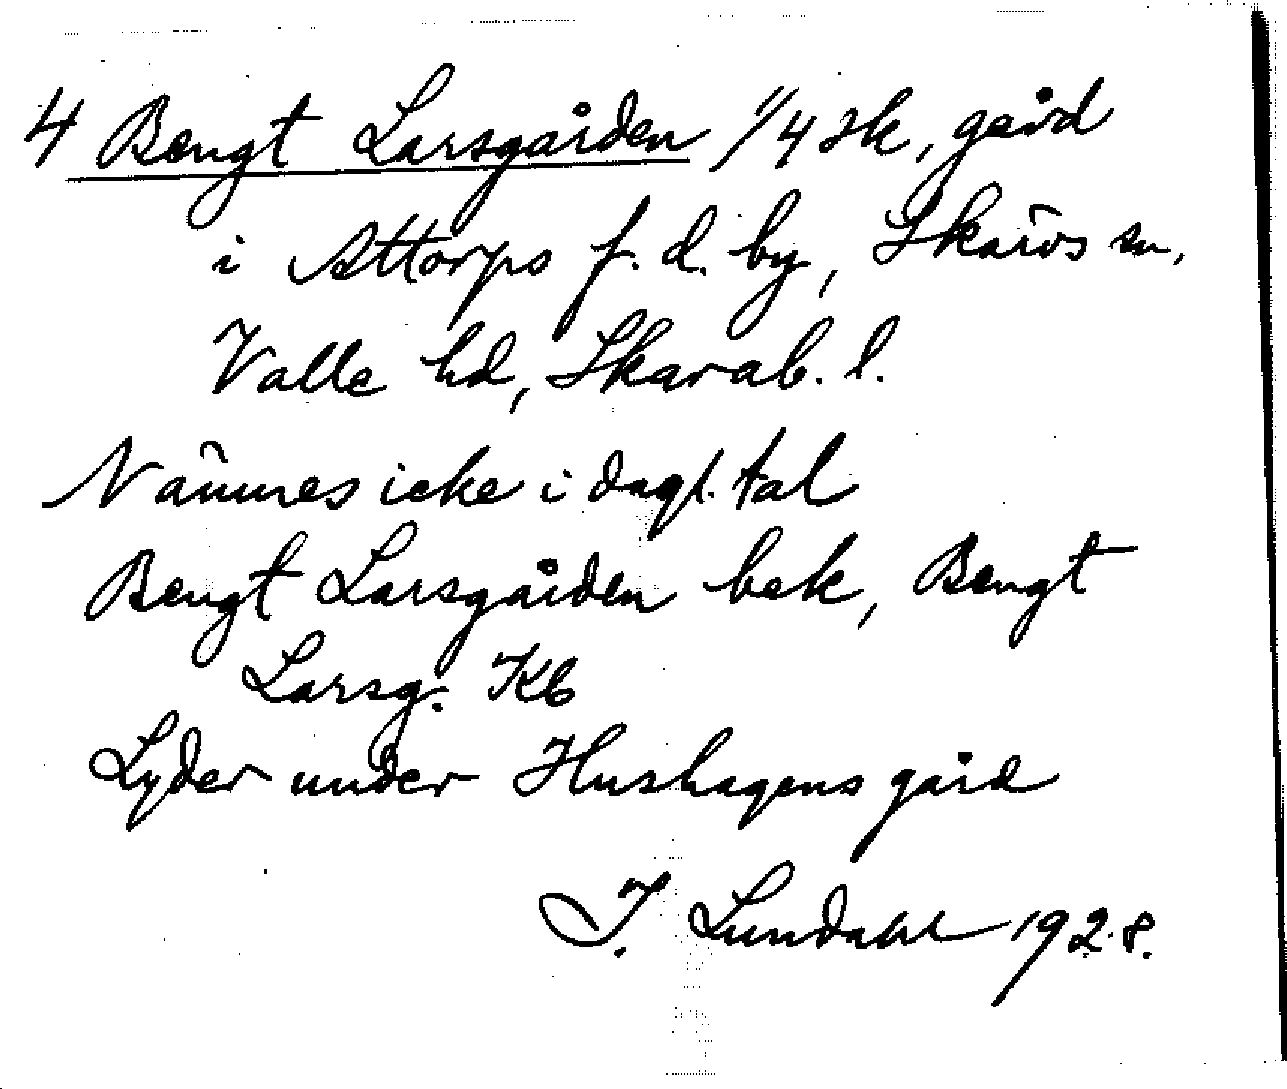 4 Bengt Larsgården 1/4 sk, gård
i Attorps f. d. by, Skärvs sn,
Valle hd, Skarab. l.
Nämnes icke i dagl. tal
Bengt Larsgården bek, Bengt
Larsg. Kb
Lyder under Hushagens gård
I. Lundahl 1928.